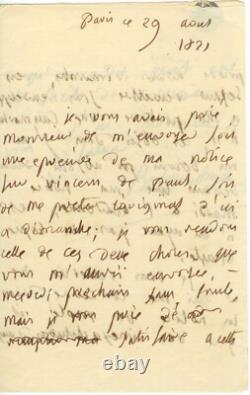 Paris ce 29 aout
1821
je vous avais prié
monsieur de m'envoyer soit
une épreuve de ma notice
sur vincent de paul, soit
de me prêter
a Dimanche; je vous rendrai
celle de ces deux choses que
vous m'auriez envoyée,
mercredi prochain sans faute,
mais je vous prie de
satisfaire a cette
© ebay